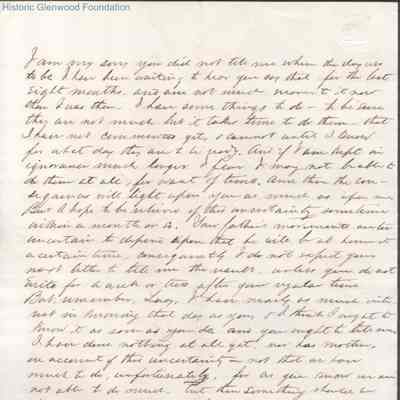 Historic Glenwood Foundation
I am very sorry you did not tell me when the day was
to be I have been waiting to hear you say that for the last
eight months, and am not much nearer to it now
than I was then. I have some things to do - to be sure
they are not much but it takes time to do them - that
I have not commenced yet, & cannot until I know
for what day they are to be ready. And if I am kept in
ignorance much longer I fear I may not be able to
do them at all, for want of time. And then the con-
sequences will light upon you as much as upon me
But I hope to be relieved of this uncertainty sometime
within a month or so. Your father's movements are too
uncertain to depend upon that he will be at home at
a certain time, consequently I do not expect your
next letter to tell me the result, unless you do not
write for a week or two after your regular time
But, remember, Lucy, I have nearly as much inte-
rest in knowing that day as you, & I think I ought to
know it as soon as you do and you ought to tell me
I have done nothing at all yet, nor has mother,
on account of this uncertainty - not that we have
much to do, unfortunately, for as you know we are
not able to do much. but then something should be